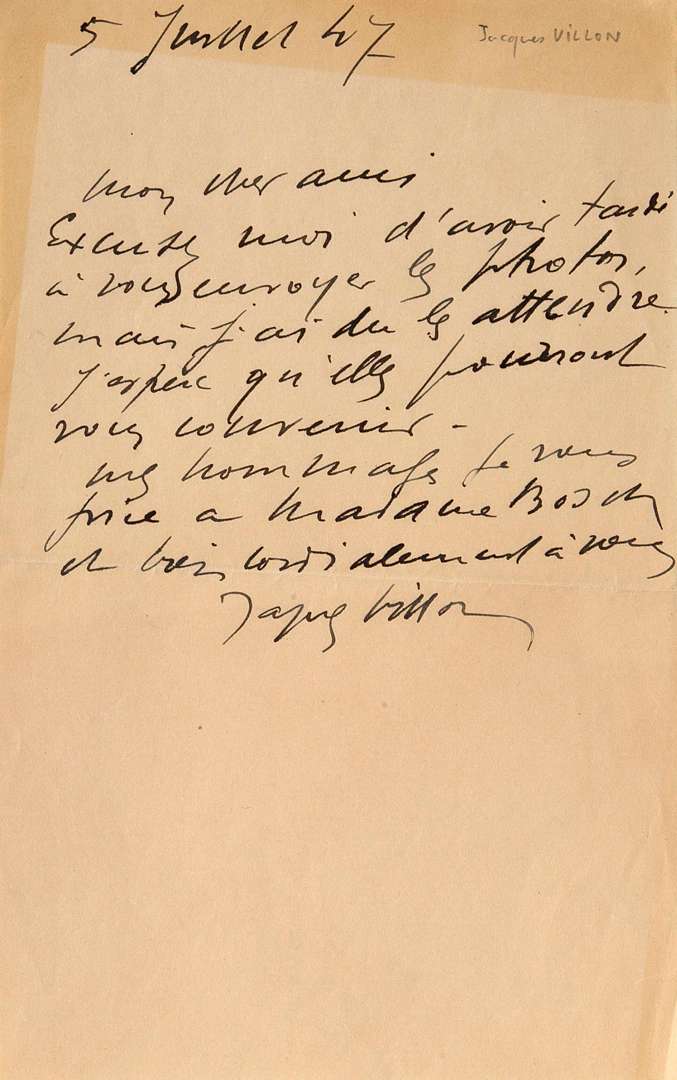 5 Juillet 47
Jacques VILLON
mon cher ami
Excusez moi d'avoir tardé
à vous envoyer les photos,
mais j'ai du les attendre
J'espère qu'elles pourront
vous convenir -
mes hommages je vous
prie a Madame Bosch
et bien cordialement à vous
Jacques Villon